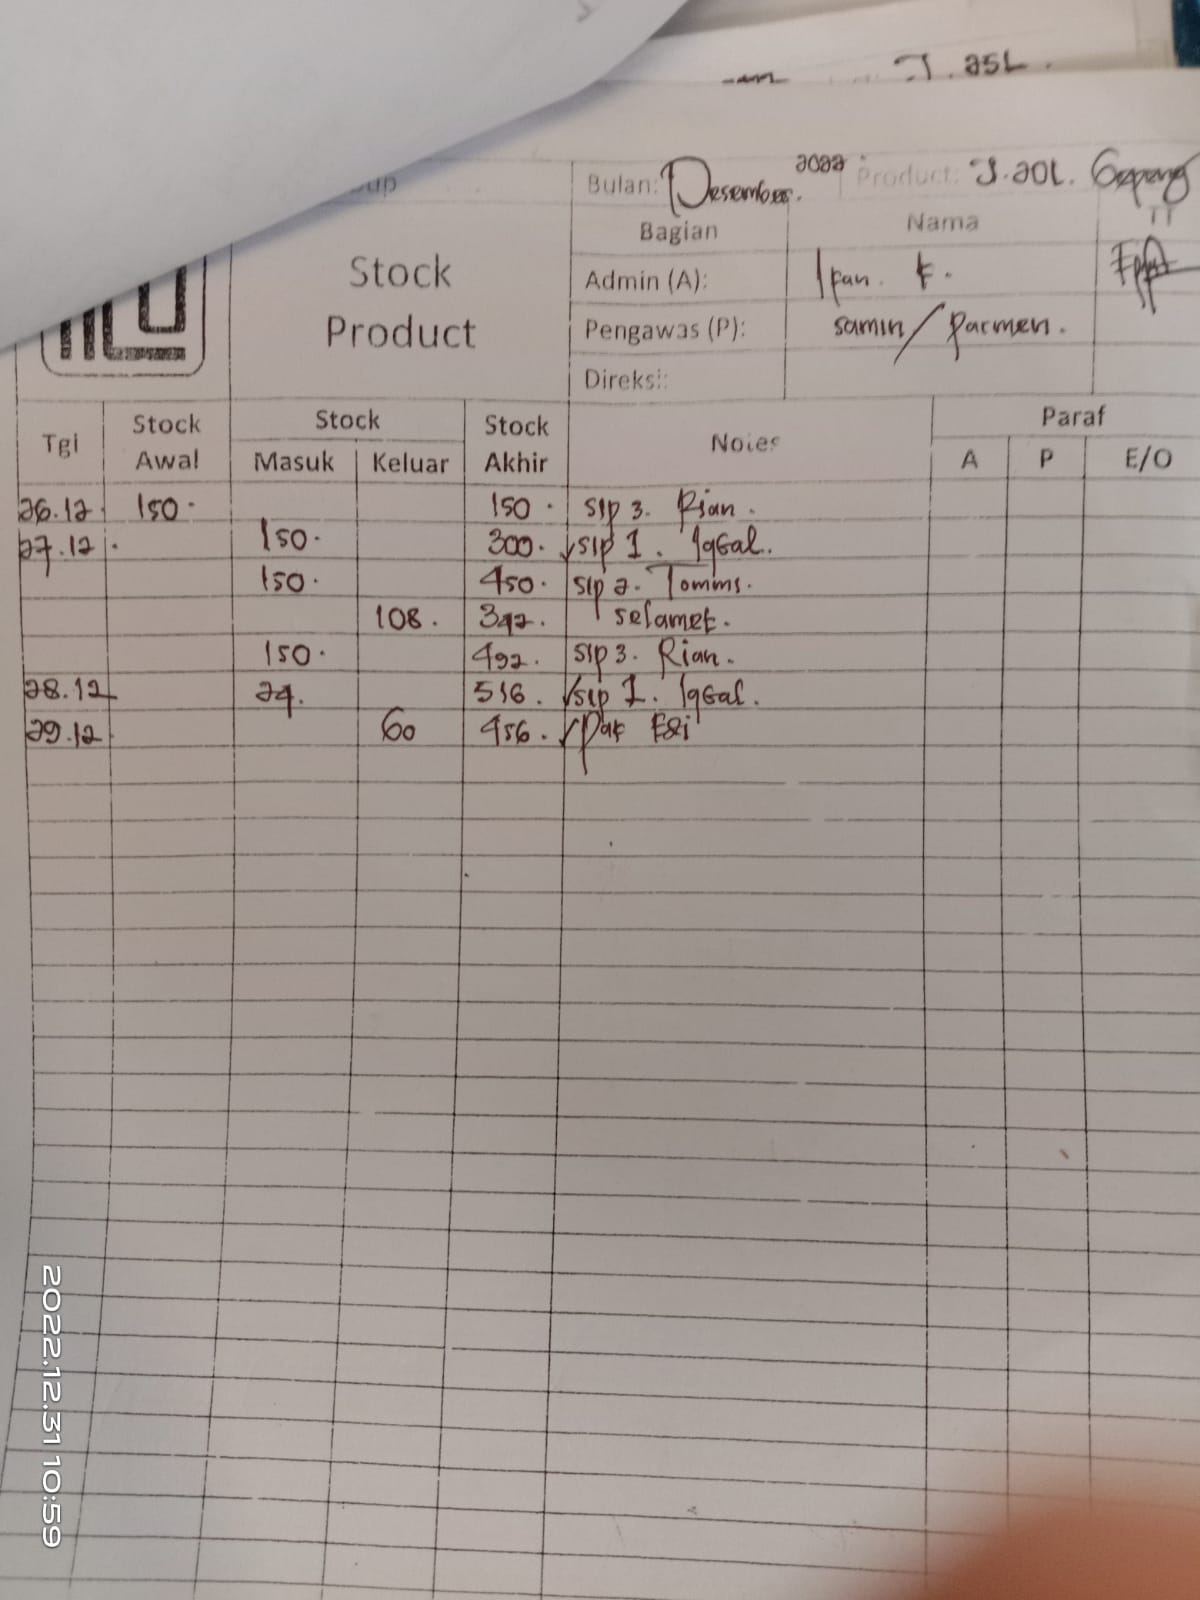 J. 25L.
Bulan: Desember. 2022 Product: J. 20L. Gepeng
Bagian Nama TT
Stock Product
Admin (A): Ifan. F.
Pengawas (P): samin/Parmen.
Direksi:
Tgl Stock Awal Stock Masuk Keluar Stock Akhir Notes Paraf A P E/O
26.12 150. 150. sip 3. Rian.
27.12 150. 300. sip 1. Iqbal.
150. 450. sip 2. Tomms.
108. 342. selamet.
150. 492. sip 3. Rian.
28.12 24. 516. sip 1. Iqbal.
29.12 60 456. Pak Edi
2022.12.31 10:59